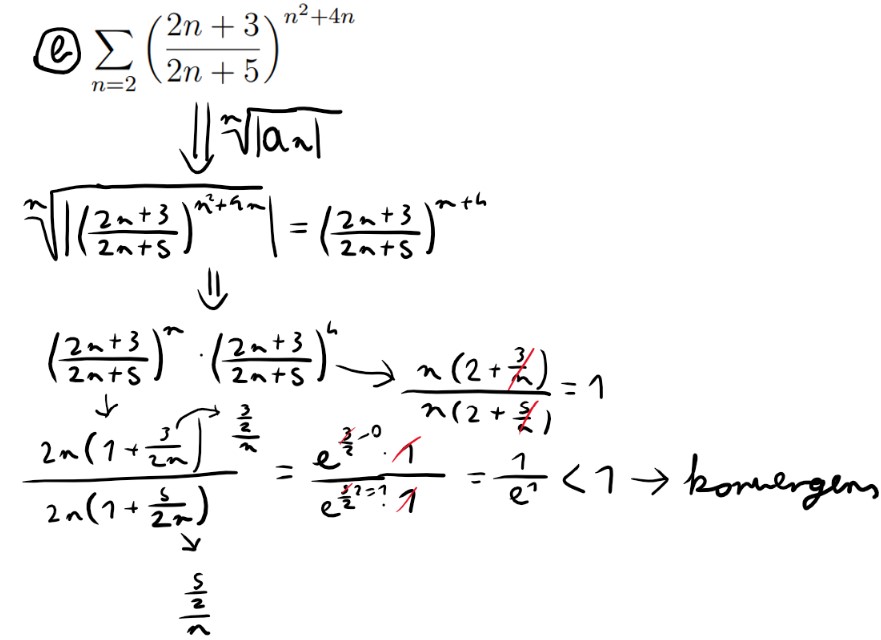 e) \sum_{n=2} \left( \frac{2n+3}{2n+5} \right)^{n^2+4n}
⇓ \sqrt[n]{|a_n|}
\sqrt[n]{\left| \left( \frac{2n+3}{2n+5} \right)^{n^2+4n} \right|} = \left( \frac{2n+3}{2n+5} \right)^{n+4}
⇓
\left( \frac{2n+3}{2n+5} \right)^n \cdot \left( \frac{2n+3}{2n+5} \right)^4 → \frac{n(2+\frac{3}{n})}{n(2+\frac{5}{n})} = 1
↓
\frac{2n(1+\frac{3}{2n})}{2n(1+\frac{5}{2n})} → \frac{\frac{3}{2}}{n} = \frac{e^{\frac{3}{2}=0} \cdot 1}{e^{\frac{5}{2}=1} \cdot 1} = \frac{1}{e^1} < 1 → konvergens
↓
\frac{\frac{5}{2}}{n}